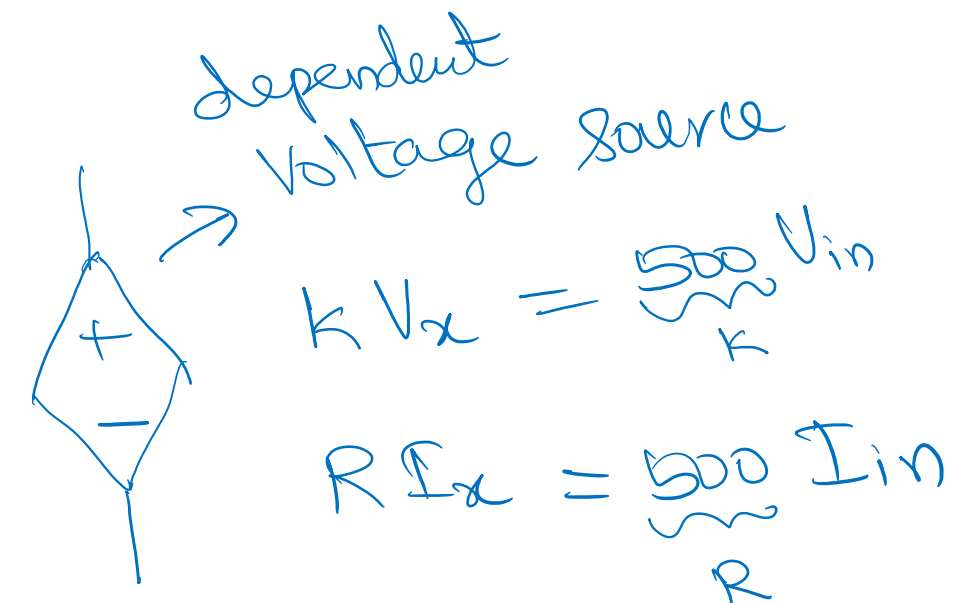 dependent
voltage source
+
−
k Vx = 500 Vin
K
R Ix = 500 Iin
R